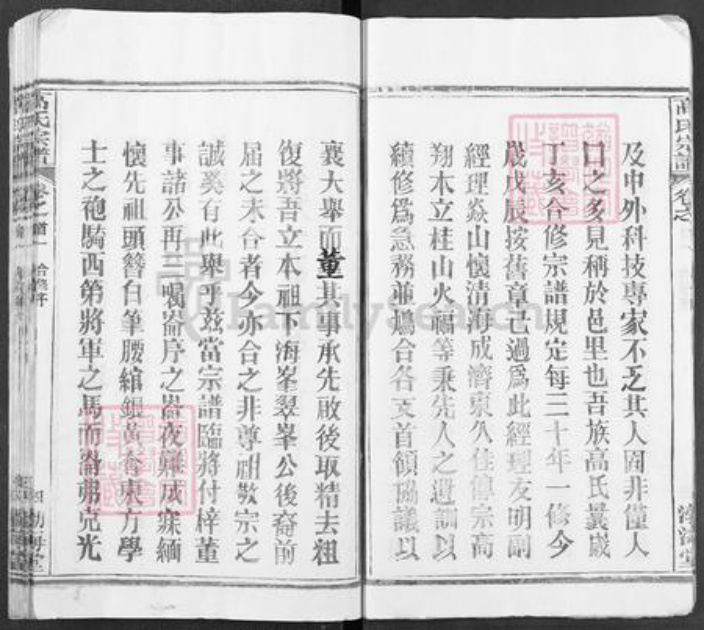 高氏宗譜
卷之
及中外科技專家不乏其人固非僅人
口之多見稱於邑里也吾族高氏曩歲
丁亥合修宗譜規定每三十年一修今
歲戊辰按舊章已過為此經理友明副
經理焱山懷清海成濟東久佳傳宗高
翔本立桂山火福等秉先人之遺訓以
續修為急務並鳩合各支首領協議以
襄大舉而董其事承先啟後取精去粗
復將吾立本祖下海峯翠峯公後裔前
屆之未合者今亦合之非尊祖敬宗之
誠奚有此舉乎茲當宗譜臨將付梓董
事諸公再三囑崙序之崙夜難成寐緬
懷先祖頭簪白筆腰綰銀黃眷東方學
士之袍騎西第將軍之馬而崙弗克光
高氏宗譜
卷之首
渤海堂
FamilySearch